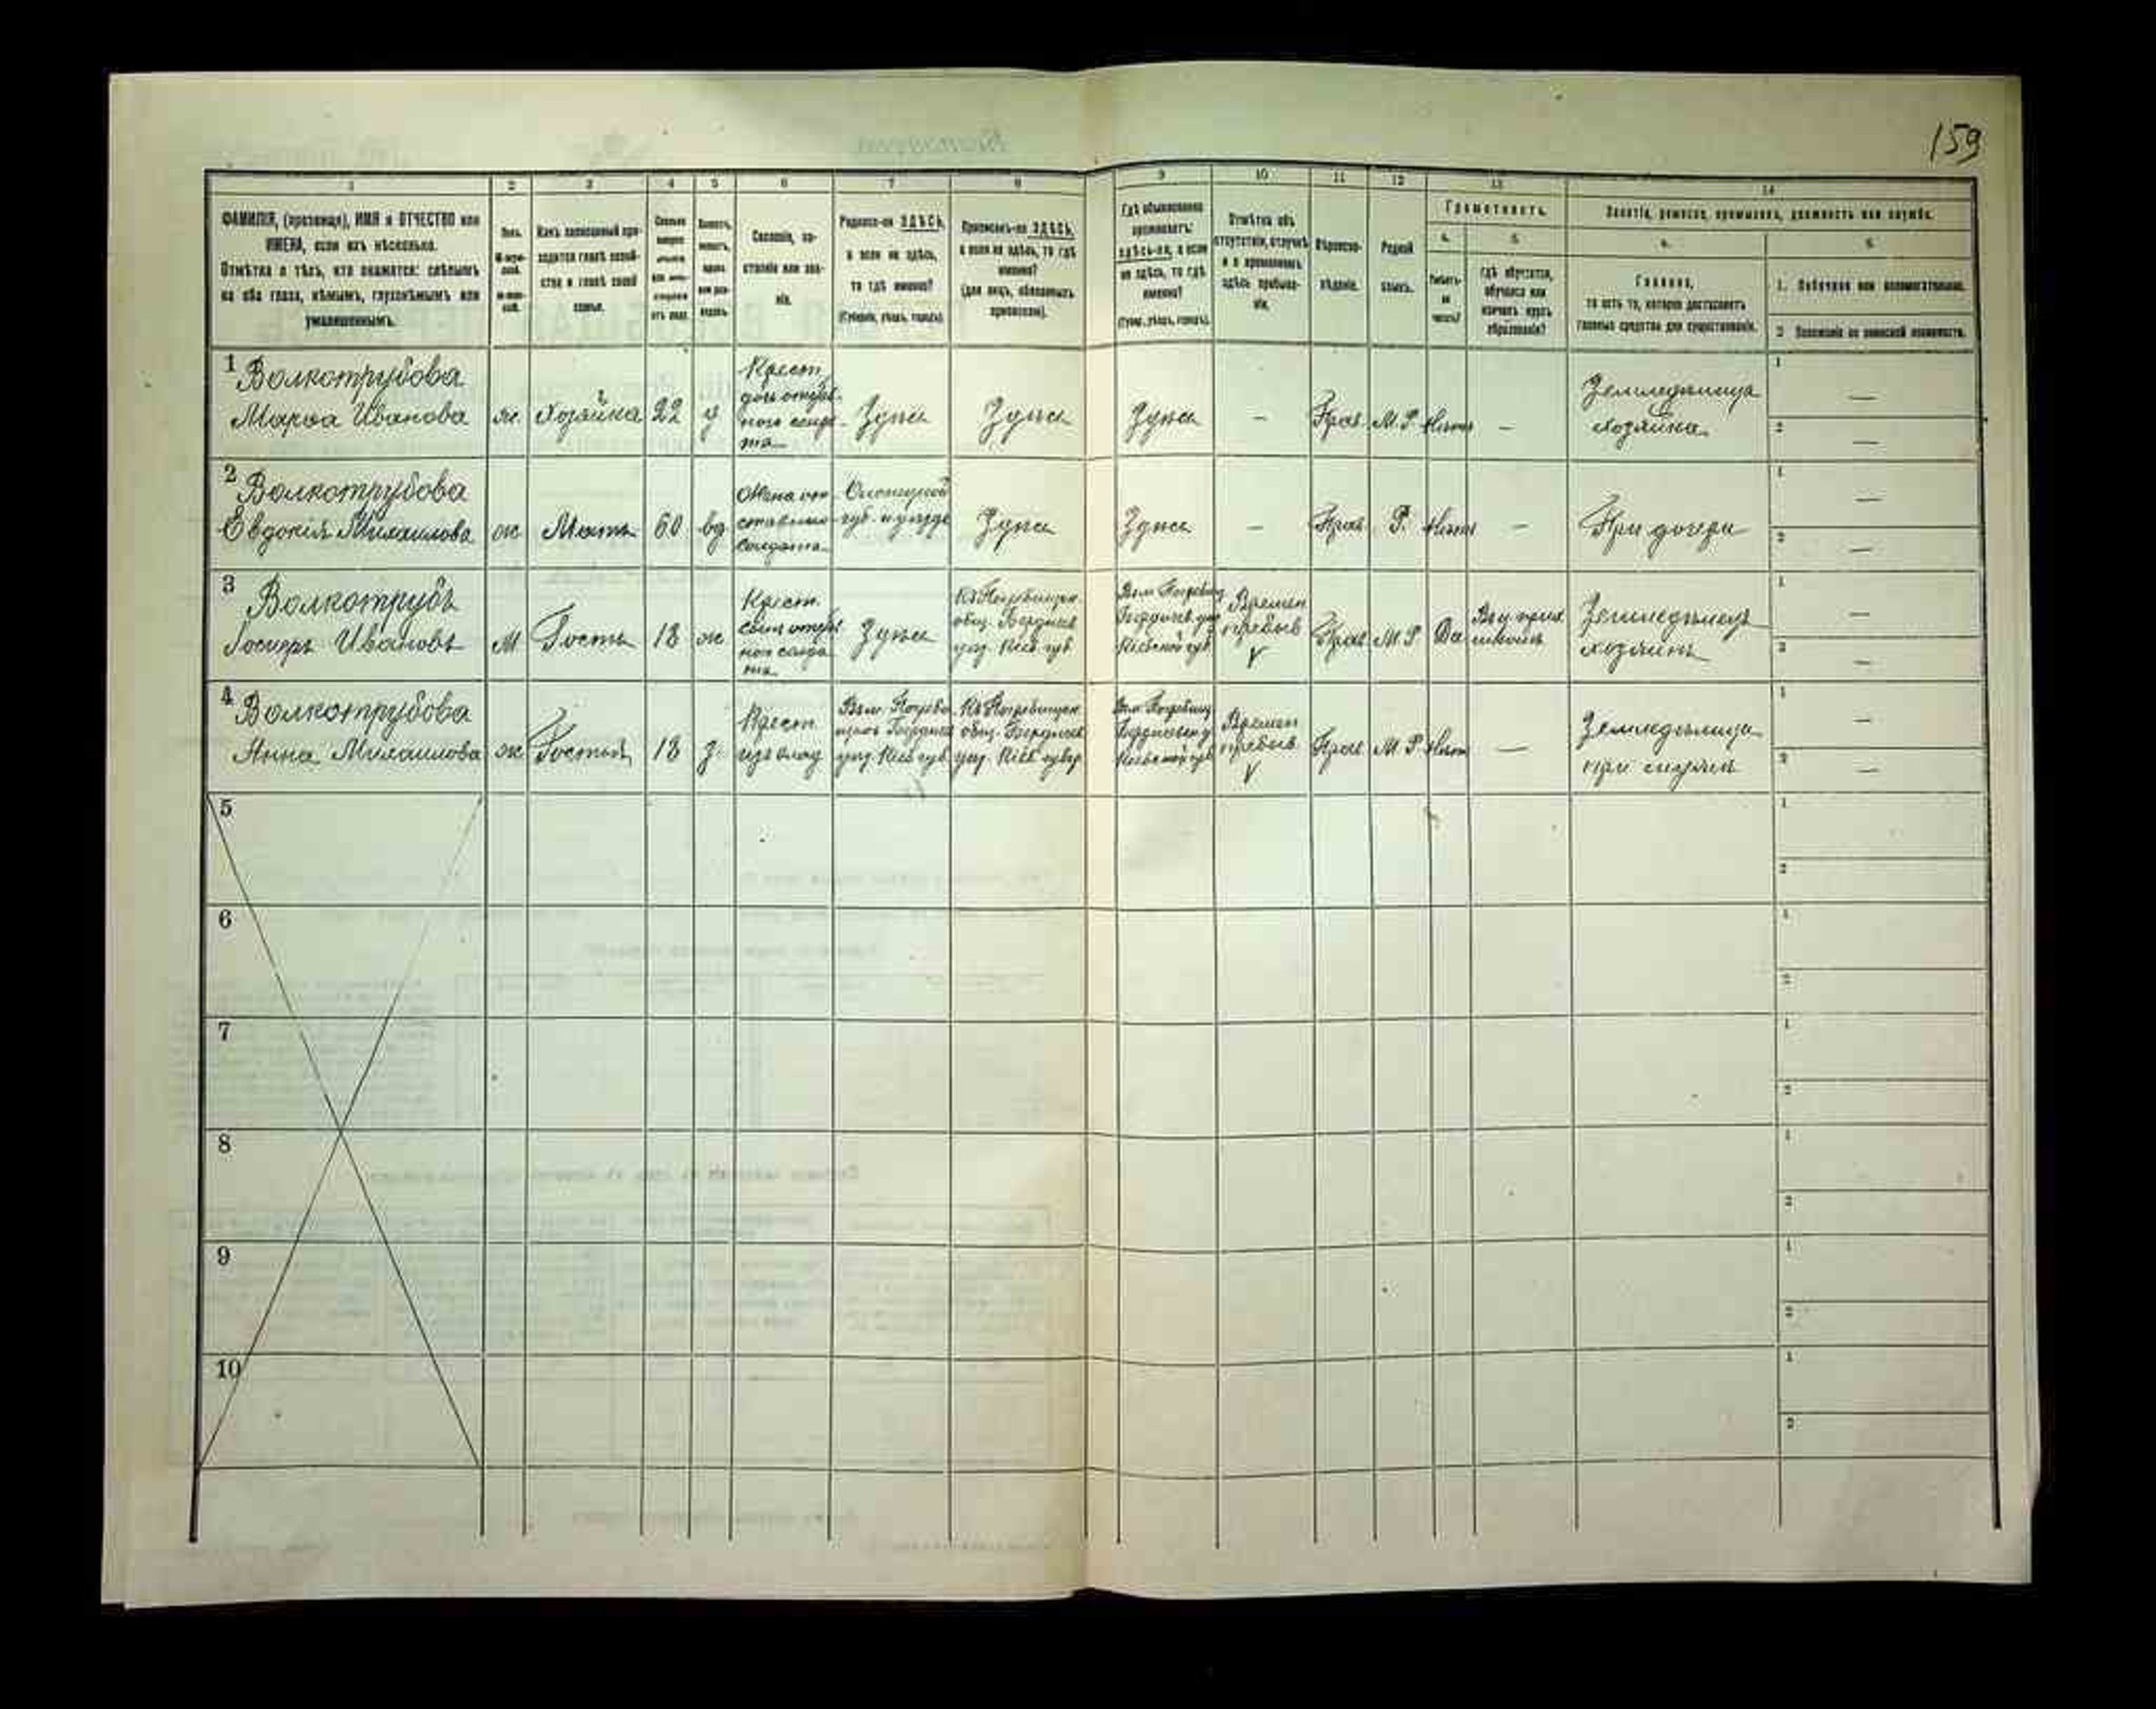 159
1 2 3 4 5 6 7 8 9 10 11 12 13 14
ФАМИЛІЯ, (прозвище), ИМЯ и ОТЧЕСТВО или
ИМЕНА, если ихъ нѣсколько.
Отмѣтка о тѣхъ, кто окажется: слѣпымъ
на оба глаза, нѣмымъ, глухонѣмымъ или
умалишеннымъ.
Полъ.
Какъ записанный при-
ходится главѣ хозяй-
ства и главѣ своей
семьи.
Сословіе, со-
стояніе или зва-
ніе.
Родился-ли ЗДѢСЬ,
а если не здѣсь,
то гдѣ именно?
(Губернія, уѣздъ, городъ).
Приписанъ-ли ЗДѢСЬ,
а если не здѣсь, то гдѣ
именно?
(для лицъ, обязанныхъ
припиской).
Гдѣ обыкновенно
проживаетъ:
здѣсь-ли, а если
не здѣсь, то гдѣ
именно?
(Губер., уѣздъ, городъ).
Отмѣтка объ
отсутствіи, отлучкѣ
и о временномъ
здѣсь пребыва-
ніи.
Вѣроиспо-
вѣданіе.
Родной
языкъ.
Грамотность.
а.
Умѣетъ-
ли
читать?
б.
гдѣ обучается,
обучался или
кончилъ курсъ
образованія?
Занятіе, ремесло, промыселъ, должность или служба.
а.
Главное,
то есть то, которое доставляетъ
главныя средства для существованія.
б.
1. Побочное или вспомогательное.
2. Положеніе по воинской повинности.
1 Волкотрубова
Марѳа Иванова
ж. Хозяйка 22 д
Крест.
дочь отстав-
ного солда-
та
Здѣсь Здѣсь Здѣсь — Прав. М.Р. Нѣтъ —
Земледѣлица
хозяйка
1 —
2 —
2 Волкотрубова
Евдокія Михаилова
ж Мать 60 вд
Жена от-
ставного
солдата
Олонецкой
губ. и уѣзда
Здѣсь Здѣсь — Прав Р. Нѣтъ —
При дочери
1 —
2 —
3 Волкотрубъ
Іосифъ Ивановъ
М Гость 18 ж
Крест.
сынъ отстав
ного солда
та
Здѣсь
Къ Погребищен.
общ. Бердичев
уѣз. Кіев. губ.
Кіевской губ.
Времен
пребыв
V
Прав М Р Да
школѣ
Земледѣлецъ
хозяинъ
1 —
2 —
4 Волкотрубова
Анна Михаилова
ж Гостья 18 з.
Крест
изъ влад
уѣз. Кіев губ.
Къ Погребищен
общ. Бердичев
уѣз. Кіев. губер
Кіевской губ
Времен
пребыв
V
Прав М Р Нѣтъ —
Земледѣлица
при мужѣ
1 —
2 —
5
1
2
6
1
2
7
1
2
8
1
2
9
1
2
10
1
2